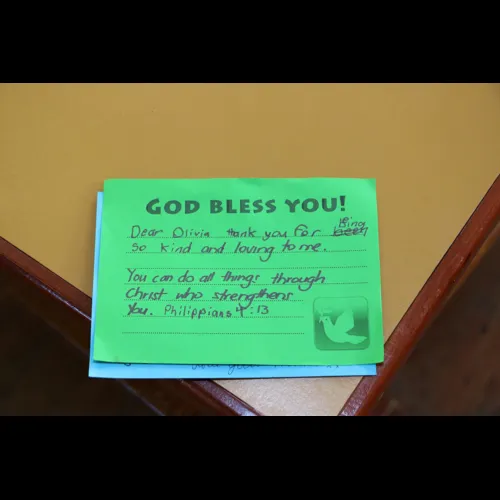 GOD BLESS YOU!
Dear Olivia thank you for been Bing
so kind and loving to me.
You can do all things through
Christ who strengthens
You. Philippians 4:13